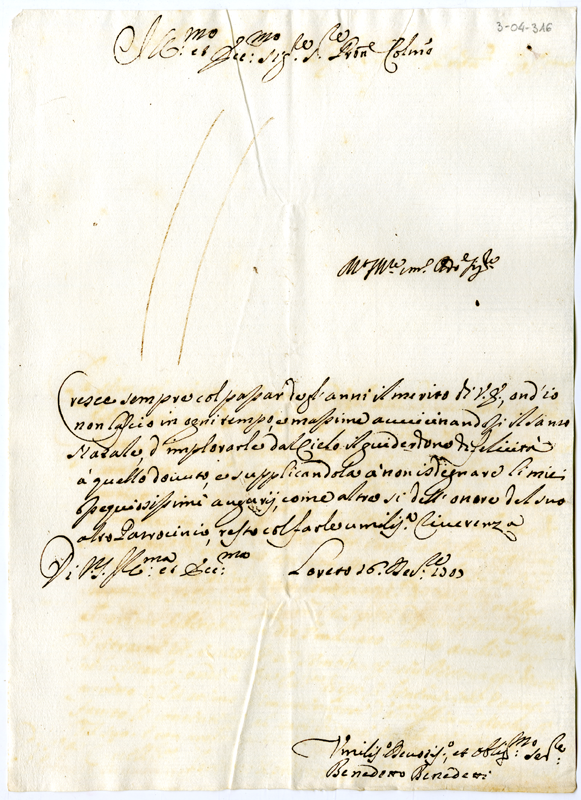 3-04-316
Ill:mo et Ecc:mo Sig.re S.re Pron Colmo
Cresce sempre col passar degl'anni il merito di V.E., ond'io
non lascio in ogni tempo, e massime avvicinandosi il Santo
Natale, d'implorarle dal Cielo il guiderdone di felicità
à quello dovuto, e supplicandola à non isdegnare li miei
ossequiosissimi augurij, come altresì dell'onore del suo
alto Patrocinio, resto col farle umiliss.a riverenza
Di V.S. Ill:ma et Ecc:mo Loreto 16. Dec.re 1703
Umiliss.o Devotiss.o, et Oblig:mo Se.re
Benedetto Benedetti